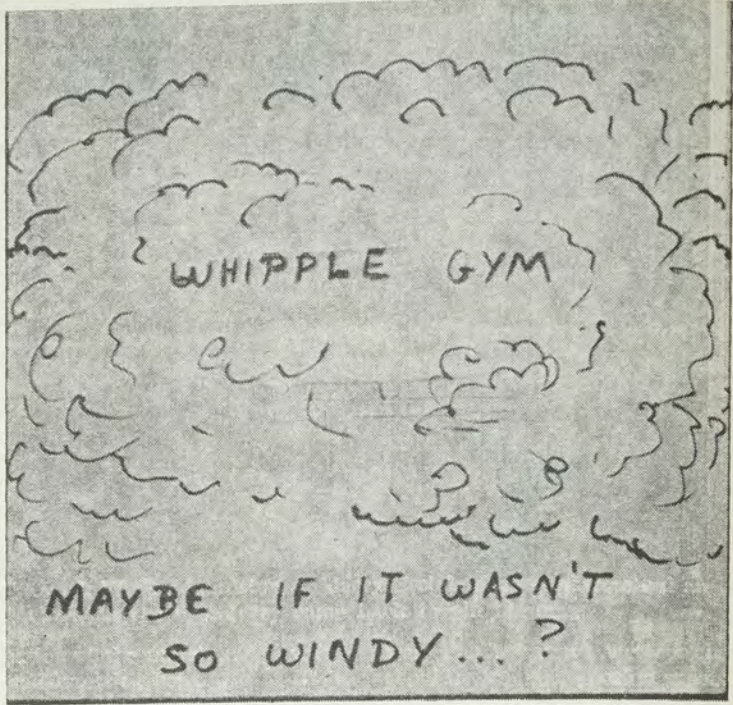 WHIPPLE GYM
MAYBE IF IT WASN'T
SO WINDY...?